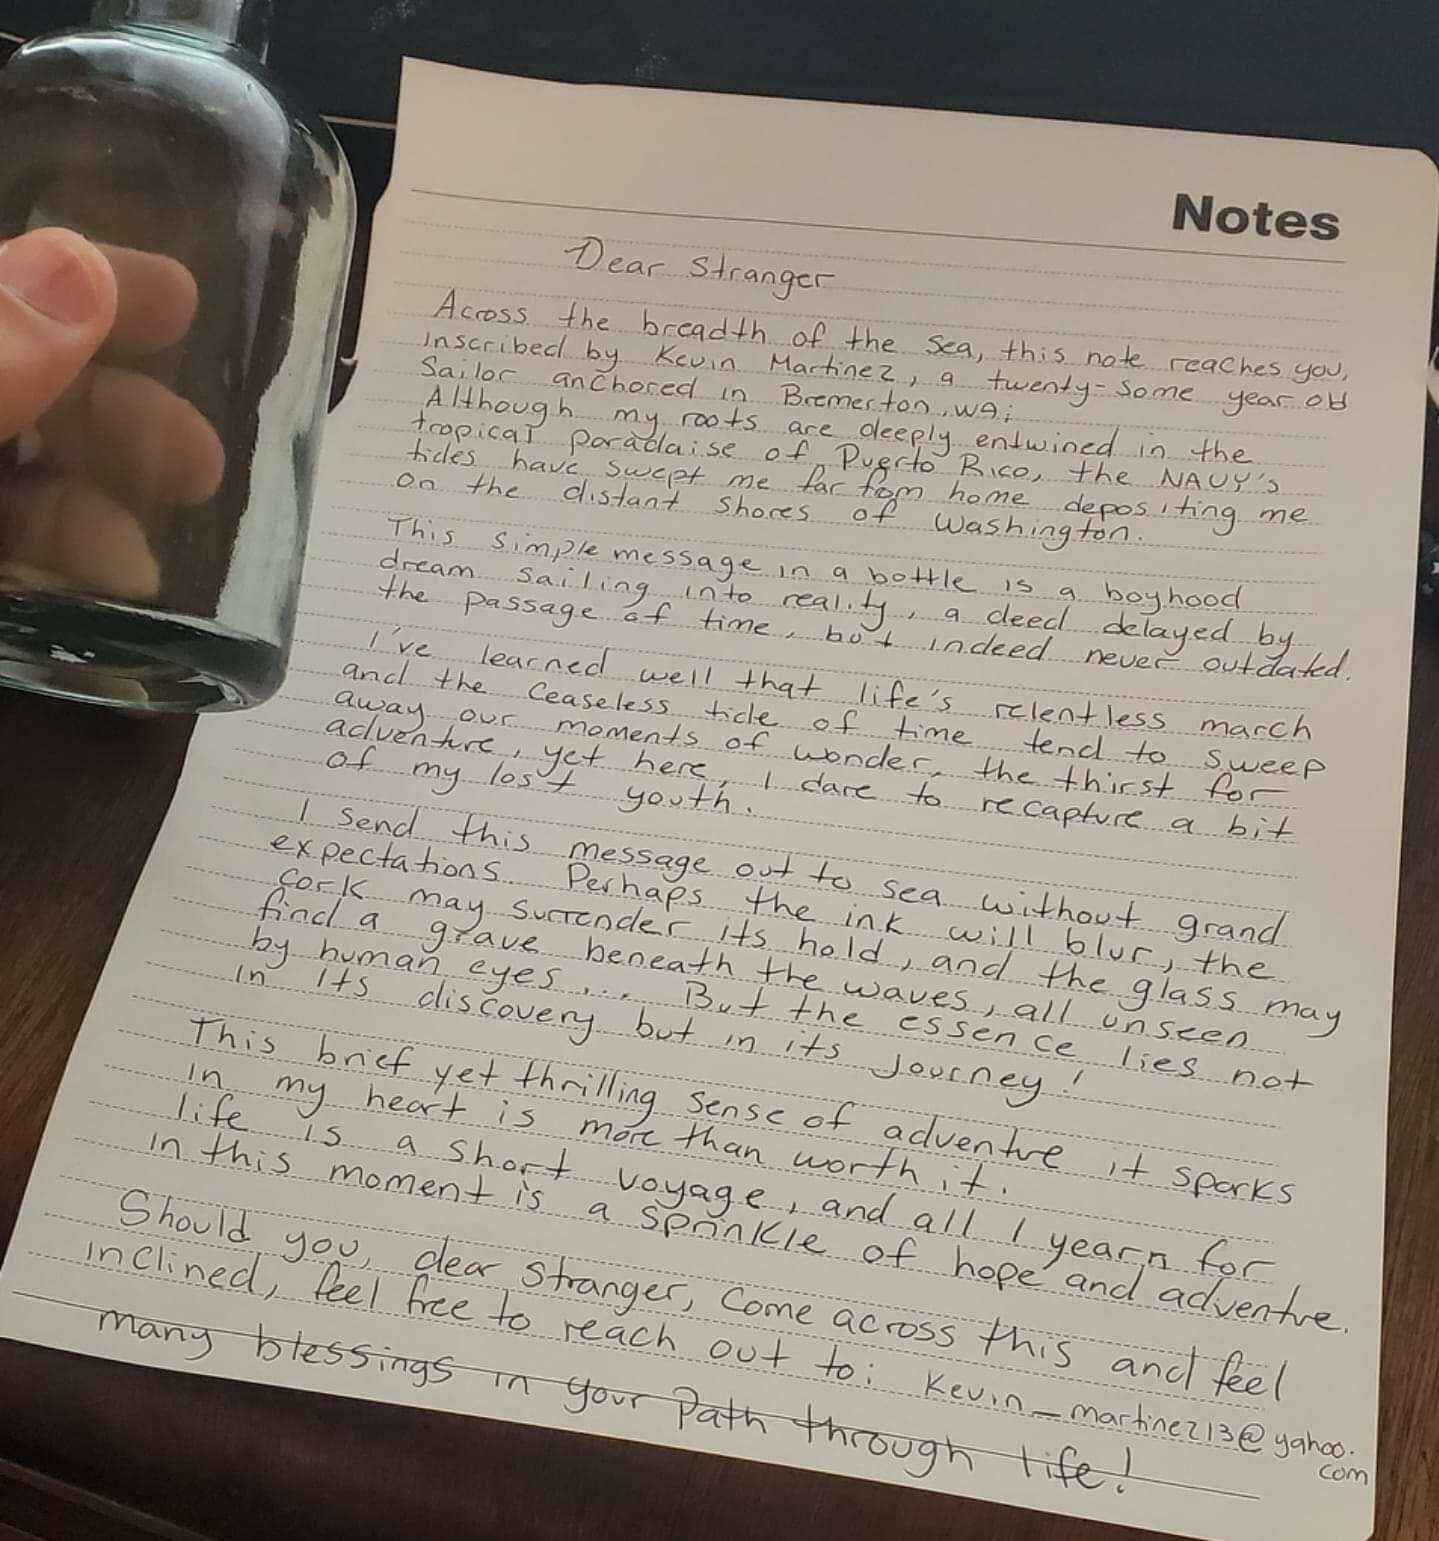 Notes
Dear Stranger
Across the breadth of the sea, this note reaches you,
inscribed by Kevin Martinez, a twenty-some year old
Sailor anchored in Bremerton, WA;
Although my roots are deeply entwined in the
tropical paradaise of Puerto Rico, the NAVY's
tides have swept me far fom home depositing me
on the distant shores of Washington.
This simple message in a bottle is a boyhood
dream sailing into reality, a deed delayed by
the passage of time, but indeed never outdated.
I've learned well that life's relentless march
and the ceaseless tide of time tend to sweep
away our moments of wonder, the thirst for
adventure, yet here, I dare to recapture a bit
of my lost youth.
I send this message out to sea without grand
expectations. Perhaps the ink will blur, the
cork may surrender its hold, and the glass may
find a grave beneath the waves, all unseen
by human eyes... But the essence lies not
in its discovery but in its journey!
This brief yet thrilling sense of adventre it sparks
in my heart is more than worth it.
life is a short voyage, and all I yearn for
in this moment is a sprinkle of hope and adventre.
Should you, dear stranger, come across this and feel
inclined, feel free to reach out to: Kevin_martinez13@yahoo.
com
many blessings in your Path through life!